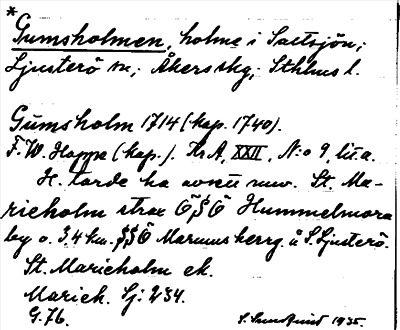 *Gumsholmen, holme i Saltsjön;
Ljusterö sn; Åkers skg; Sthlms l.
Gumsholm 1714 (kop. 1740).
F. W. Hoppe (kop.). Kr A, XXII, N:o 9, lit a.
H. torde ha avsett nuv. St. Ma-
rieholm strax ÖSÖ Hummelmora
by o. 3,4 km. SSÖ Marums herrg. å S. Ljusterö.
St. Marieholm ek.
Marieh. Sj: 234.
G. 76.
1935.